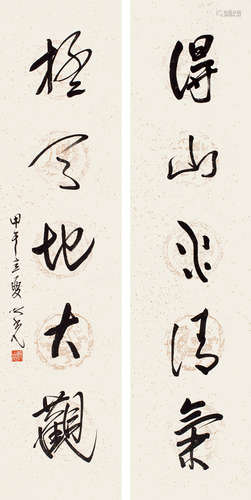 得山水清氣
極天地大觀
甲午立夏